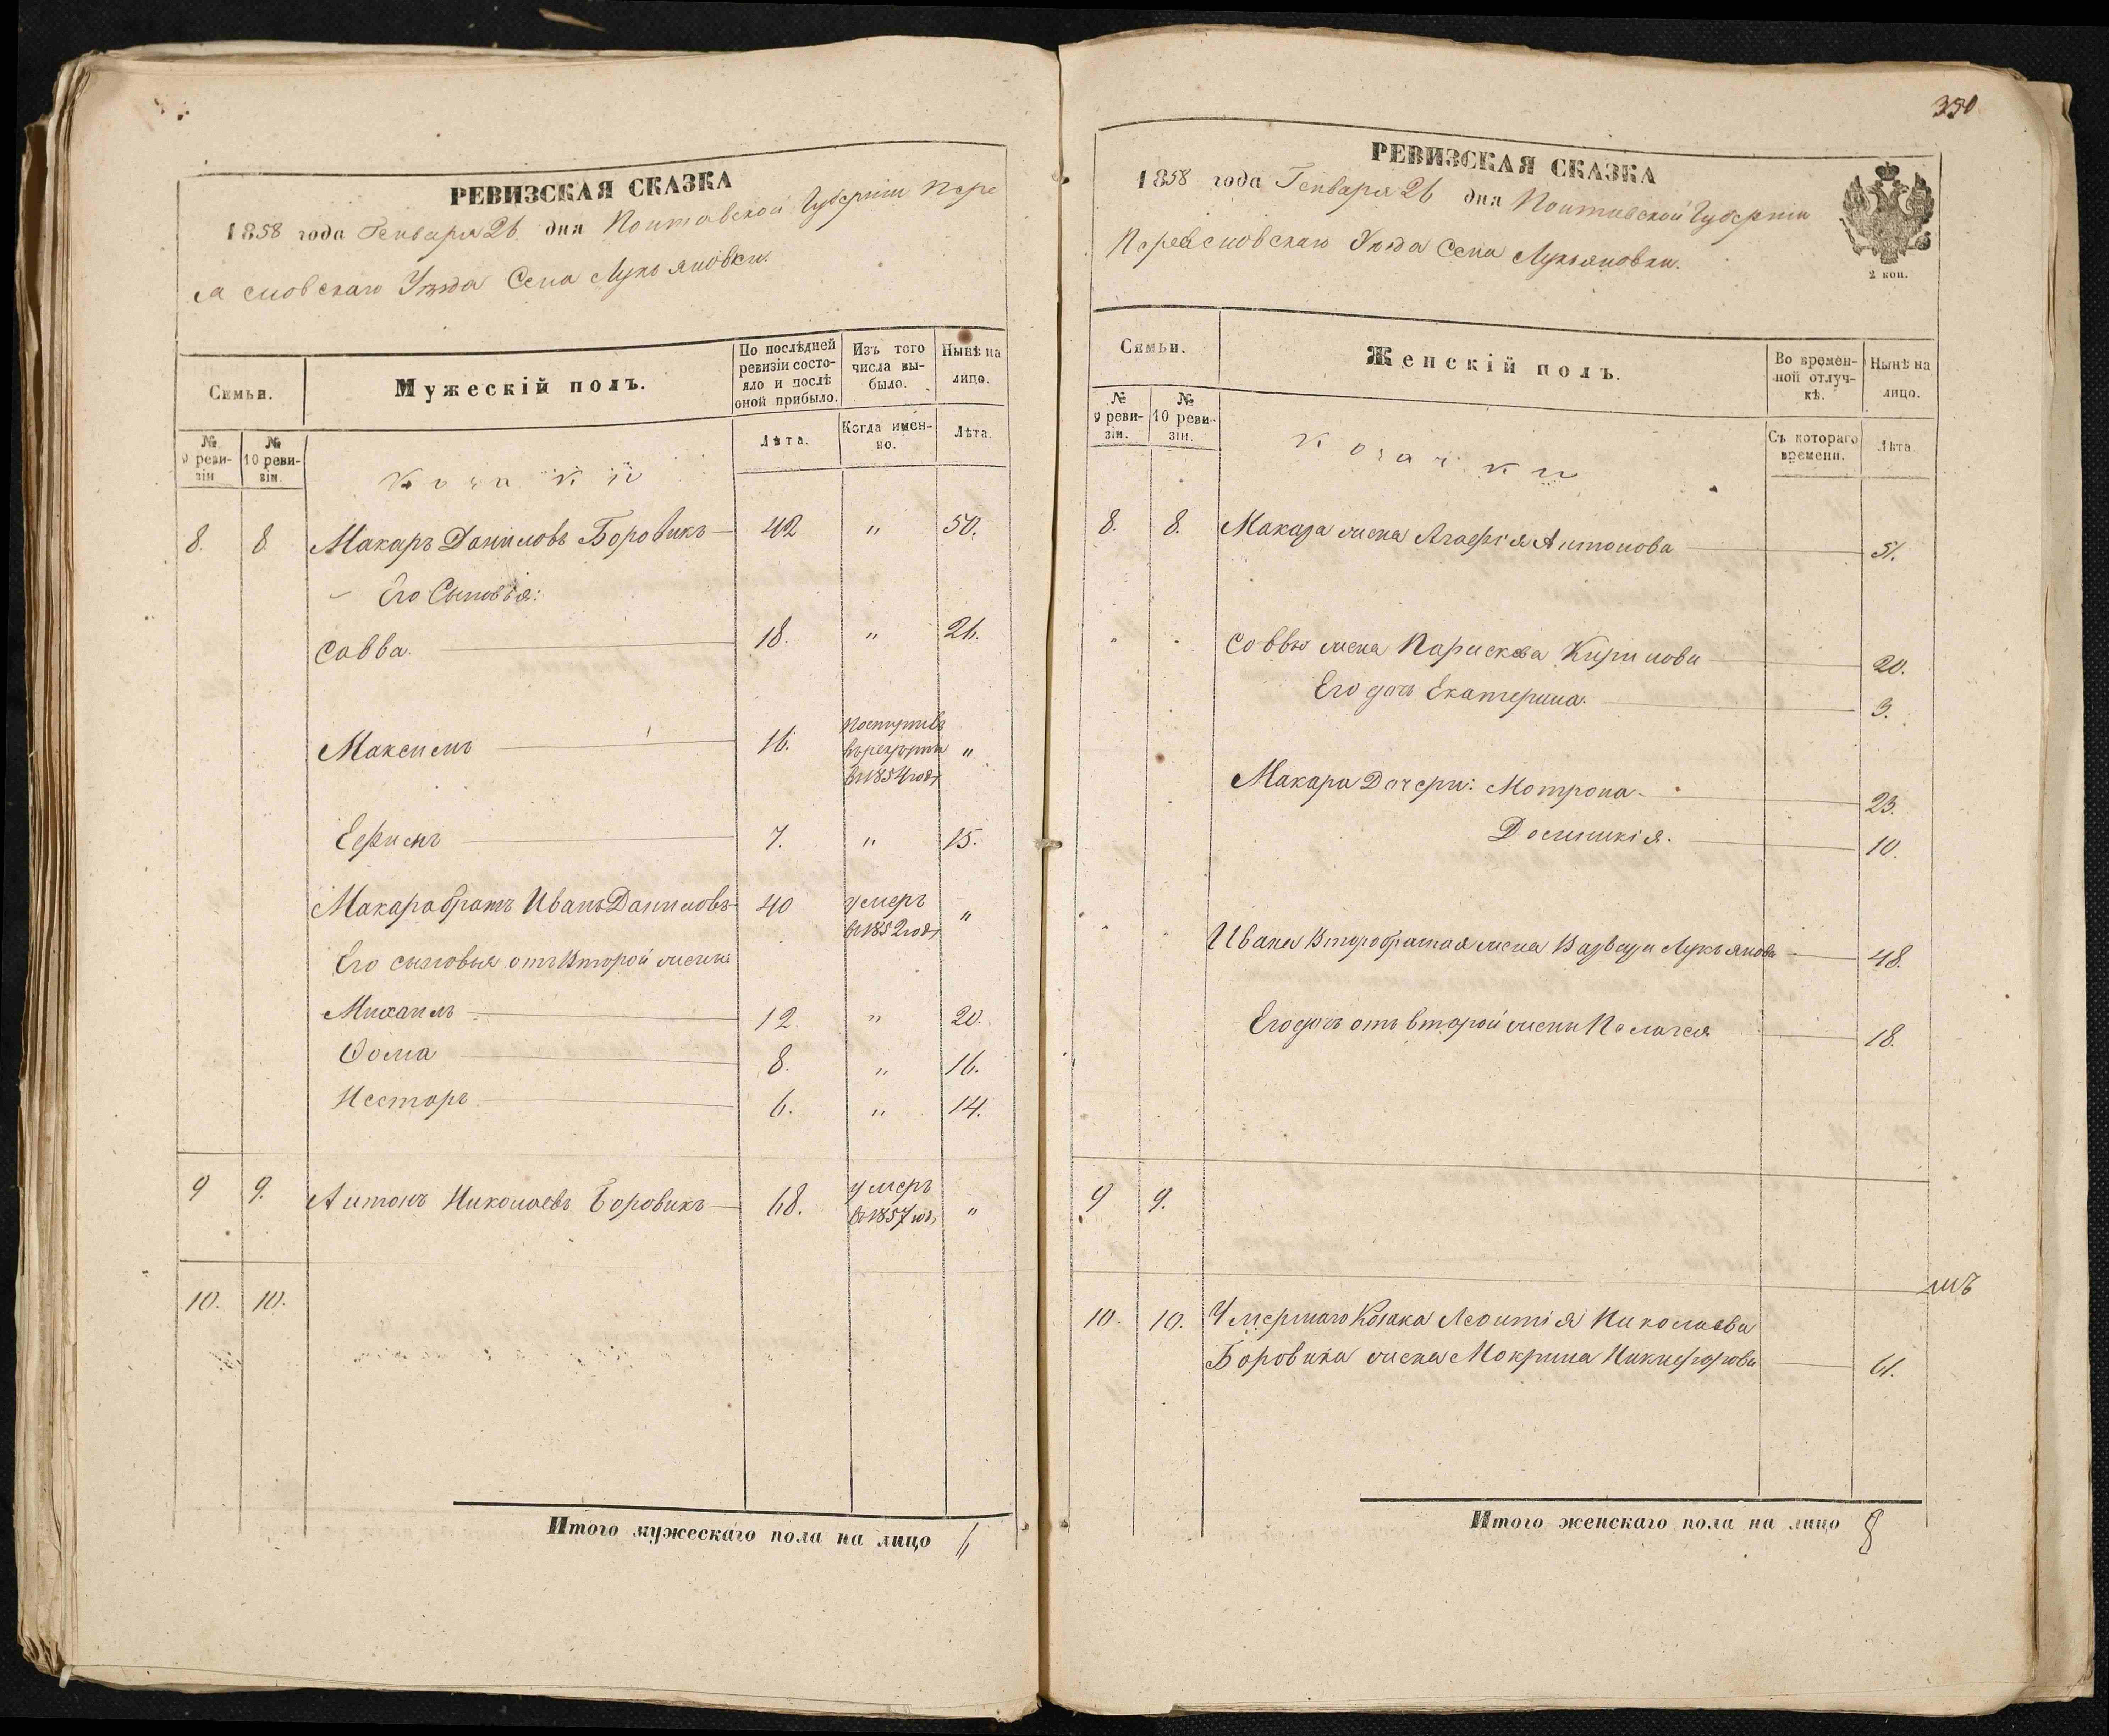 РЕВИЗСКАЯ СКАЗКА
1858 года Генваря 26 дня Полтавской Губерніи Пере
яславскаго Уѣзда Села Лукьяновки.
Семьи.
Мужескій полъ.
По послѣдней ревизіи состояло и послѣ оной прибыло.
Изъ того числа выбыло.
Нынѣ на лицо.
№ 9 ревизіи
№ 10 ревизіи.
Козаки
Лѣта.
Когда именно.
Лѣта
8. 8. Макаръ Даниловъ Боровикъ 42 " 50.
Его Сыновья:
Савва. 18. " 26.
Максимъ 16. поступилъ в рекруты в 1854 годѣ "
Ефимъ 7. " 15.
Макара братъ Иванъ Даниловъ 40 умеръ в 1852 годѣ "
Его сыновья отъ второй жены
Михаилъ 12. " 20.
Ѳома 8. " 16.
Несторъ 6. " 14.
9 9. Антонъ Николаевъ Боровикъ 68. умеръ в 1857 год, "
10. 10.
Итого мужескаго пола на лицо 6
350
РЕВИЗСКАЯ СКАЗКА
1858 года Генваря 26 дня Полтавской Губерніи
Переяславскаго Уѣзда Села Лукьяновки.
2 коп.
Семьи.
Женскій полъ.
Во временной отлучкѣ.
Нынѣ на лицо.
№ 9 ревизіи.
№ 10 ревизіи.
Козачки
Съ котораго времени.
Лѣта
8. 8. Макара жена Агафія Антонова 51.
" " Саввы жена Параскева Кирилова 20.
Его дочь Екатерина. 3.
Макара Дочери: Мотрона 23.
Домникія. 10.
" " Ивана второбрачная жена Варвара Лукьянова 48.
Его дочь отъ второй жены Пелагея 18.
9 9.
10. 10. Умершаго Козака Леонтія Николаева
Боровика жена Мокрина Никифорова 61.
Итого женскаго пола на лицо 8